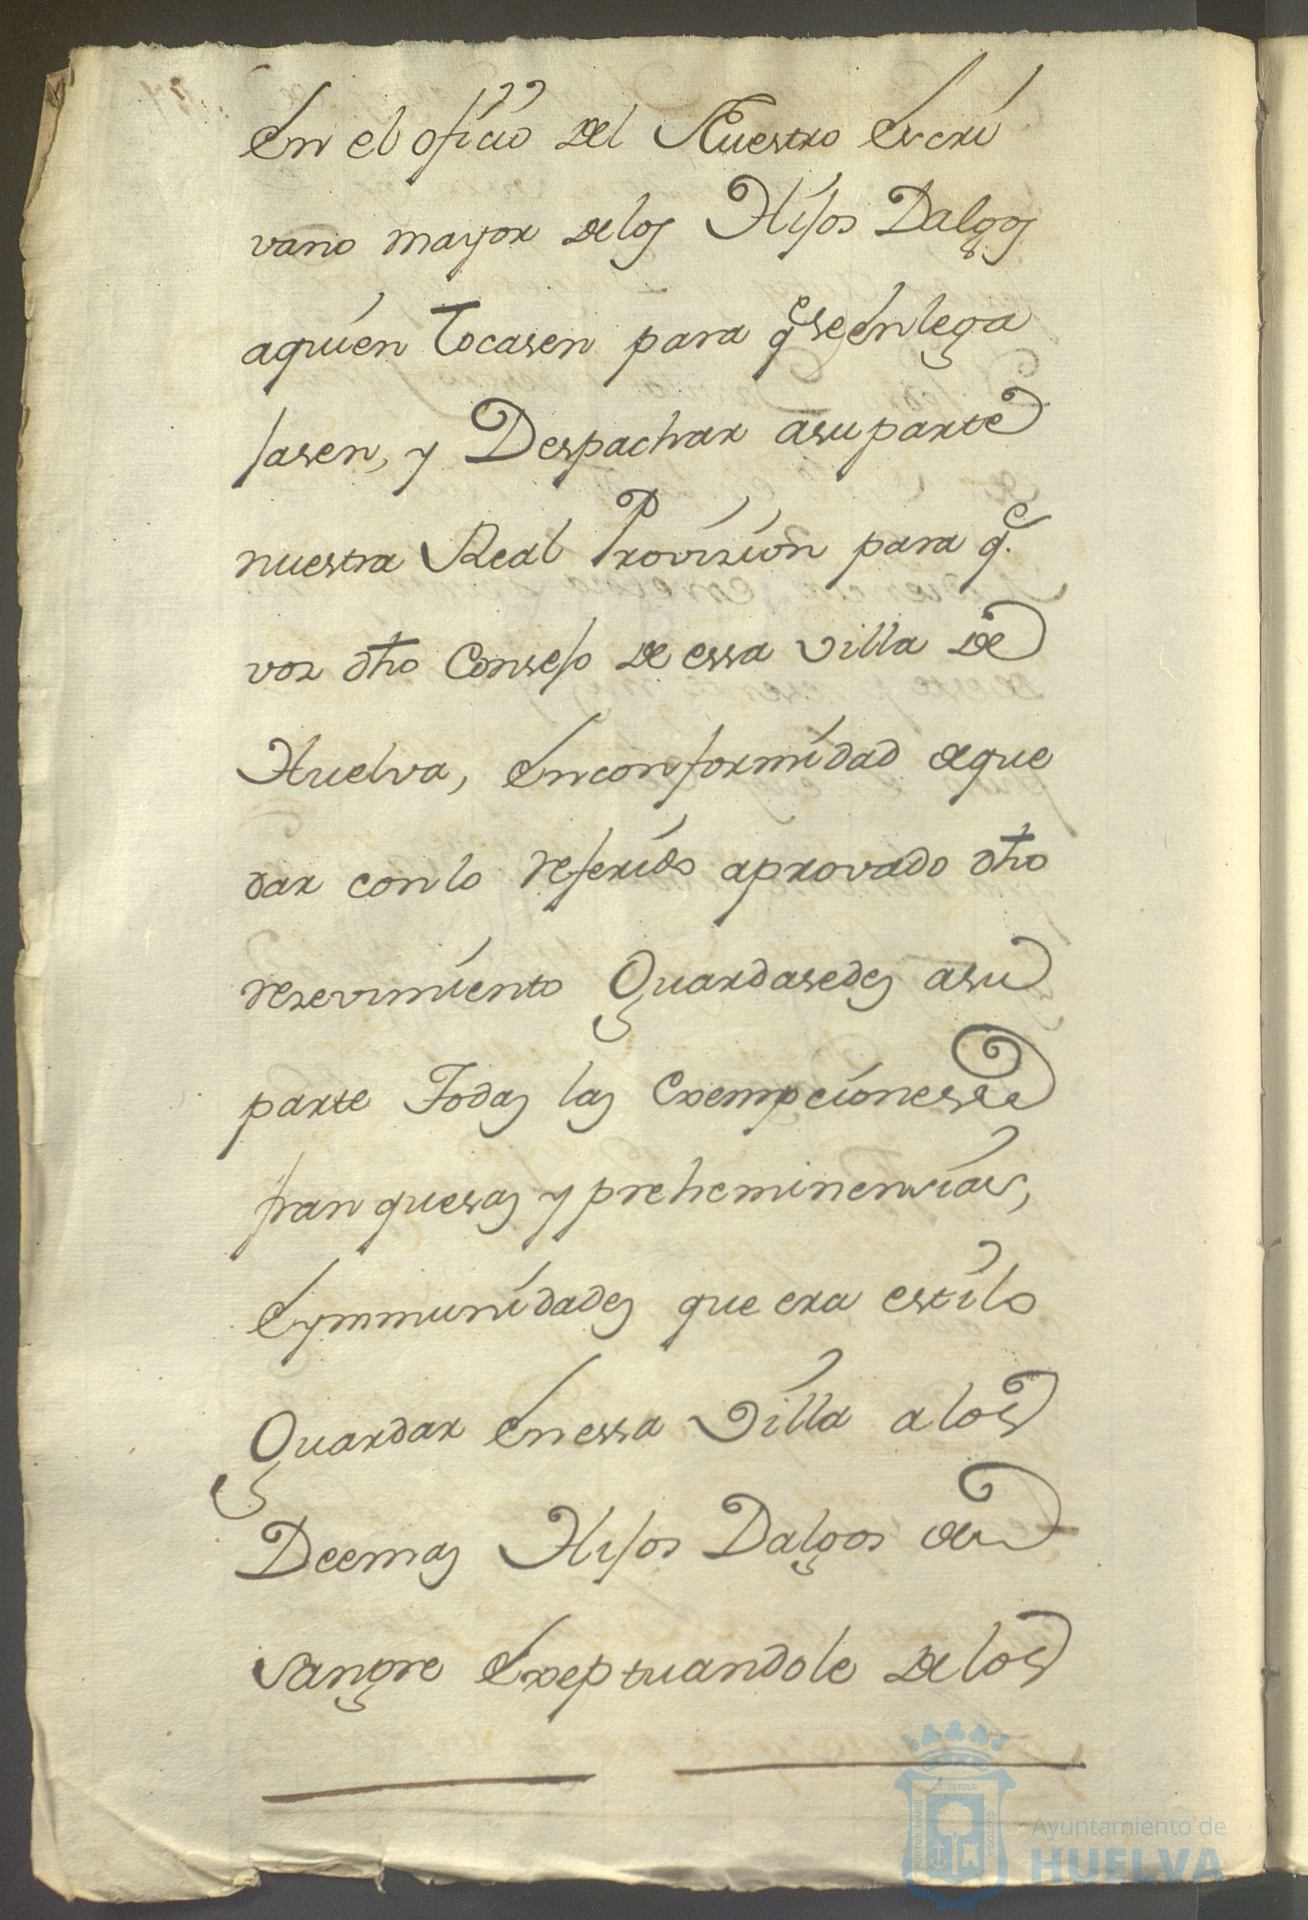 En el oficio del Nuestro Escri
vano mayor de los Hijos Dalgos
aquien tocasen para q̃ se enlega
jasen, y Despachar asu parte
nuestra Real Provizion para q.e
vos dho Consejo de essa villa de
Huelva, En conformidad deque
dar con lo referido aprovado dho
resevimiento Guardasedes asu
parte Todas las Exempciones
franquesas y preheminensias,
Eymmunidades que era estilo
Guardar En essa Villa a los
Deemas Hijos Dalgos de
Sangre Exeptuandole de los
ET TERRAE
Ayuntamiento de
HUELVA